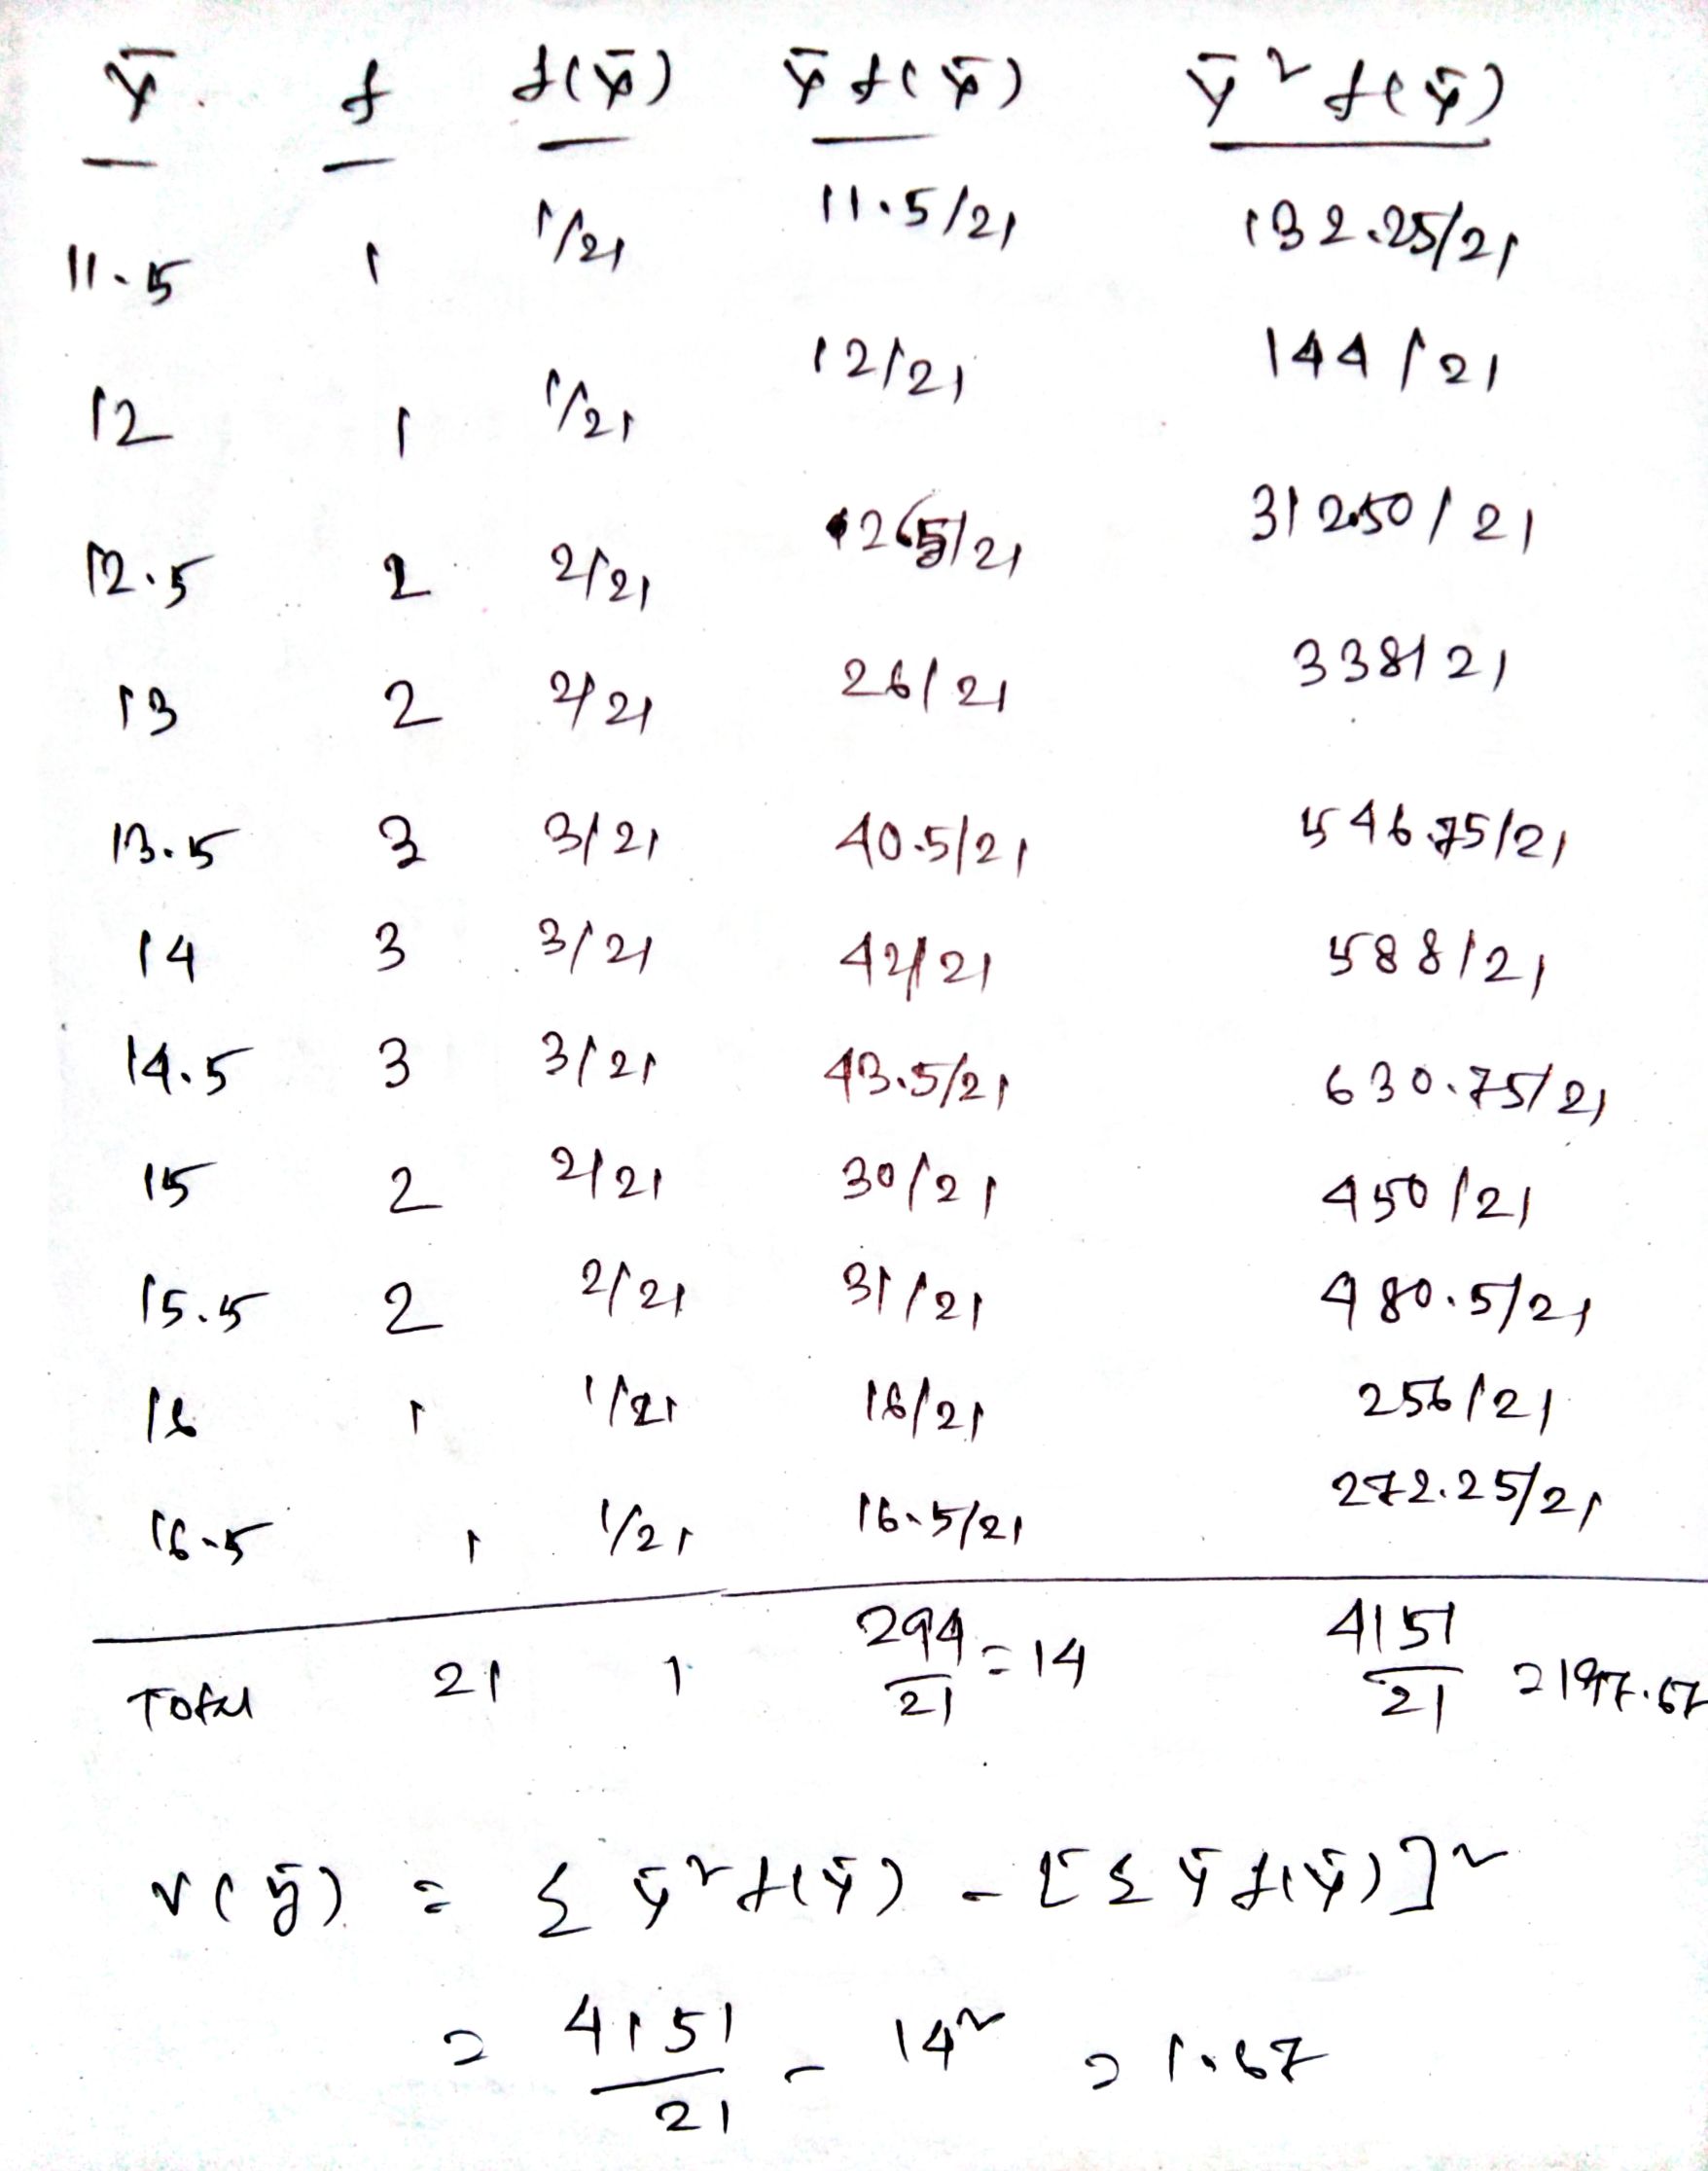 ȳ f f(ȳ) ȳ f(ȳ) ȳ² f(ȳ)
11.5 1 1/21 11.5/21 132.25/21
12 1 1/21 12/21 144/21
12.5 2 2/21 /21 312.50/21
13 2 2/21 26/21 338/21
13.5 3 3/21 40.5/21 546.75/21
14 3 3/21 42/21 588/21
14.5 3 3/21 43.5/21 630.75/21
15 2 2/21 30/21 450/21
15.5 2 2/21 31/21 480.5/21
16 1 1/21 16/21 256/21
16.5 1 1/21 16.5/21 272.25/21
Total 21 1 294/21 = 14 4151/21 = 197.67
v(ȳ) = Σ ȳ² f(ȳ) - [Σ ȳ f(ȳ)]²
= 4151/21 - 14² = 1.67